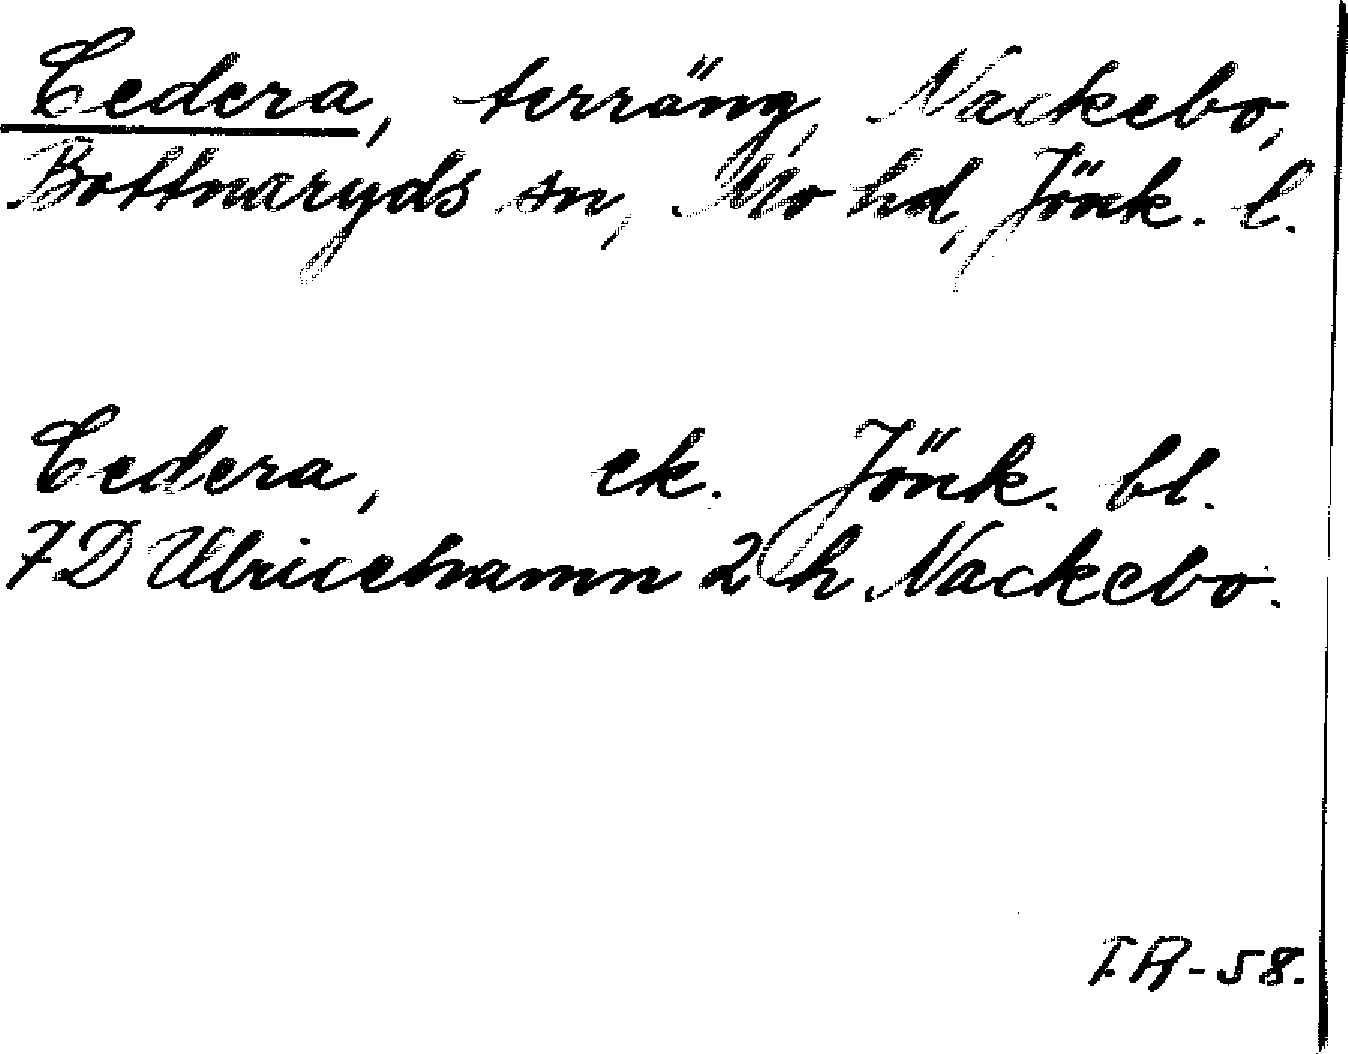 Cedera, terräng, Nackebo,
Bottnaryds sn, Mo hd, Jönk. l.
Cedera, ek. Jönk. bl.
7D Ulricehamn 2 h Nackebo.
I.R-58.